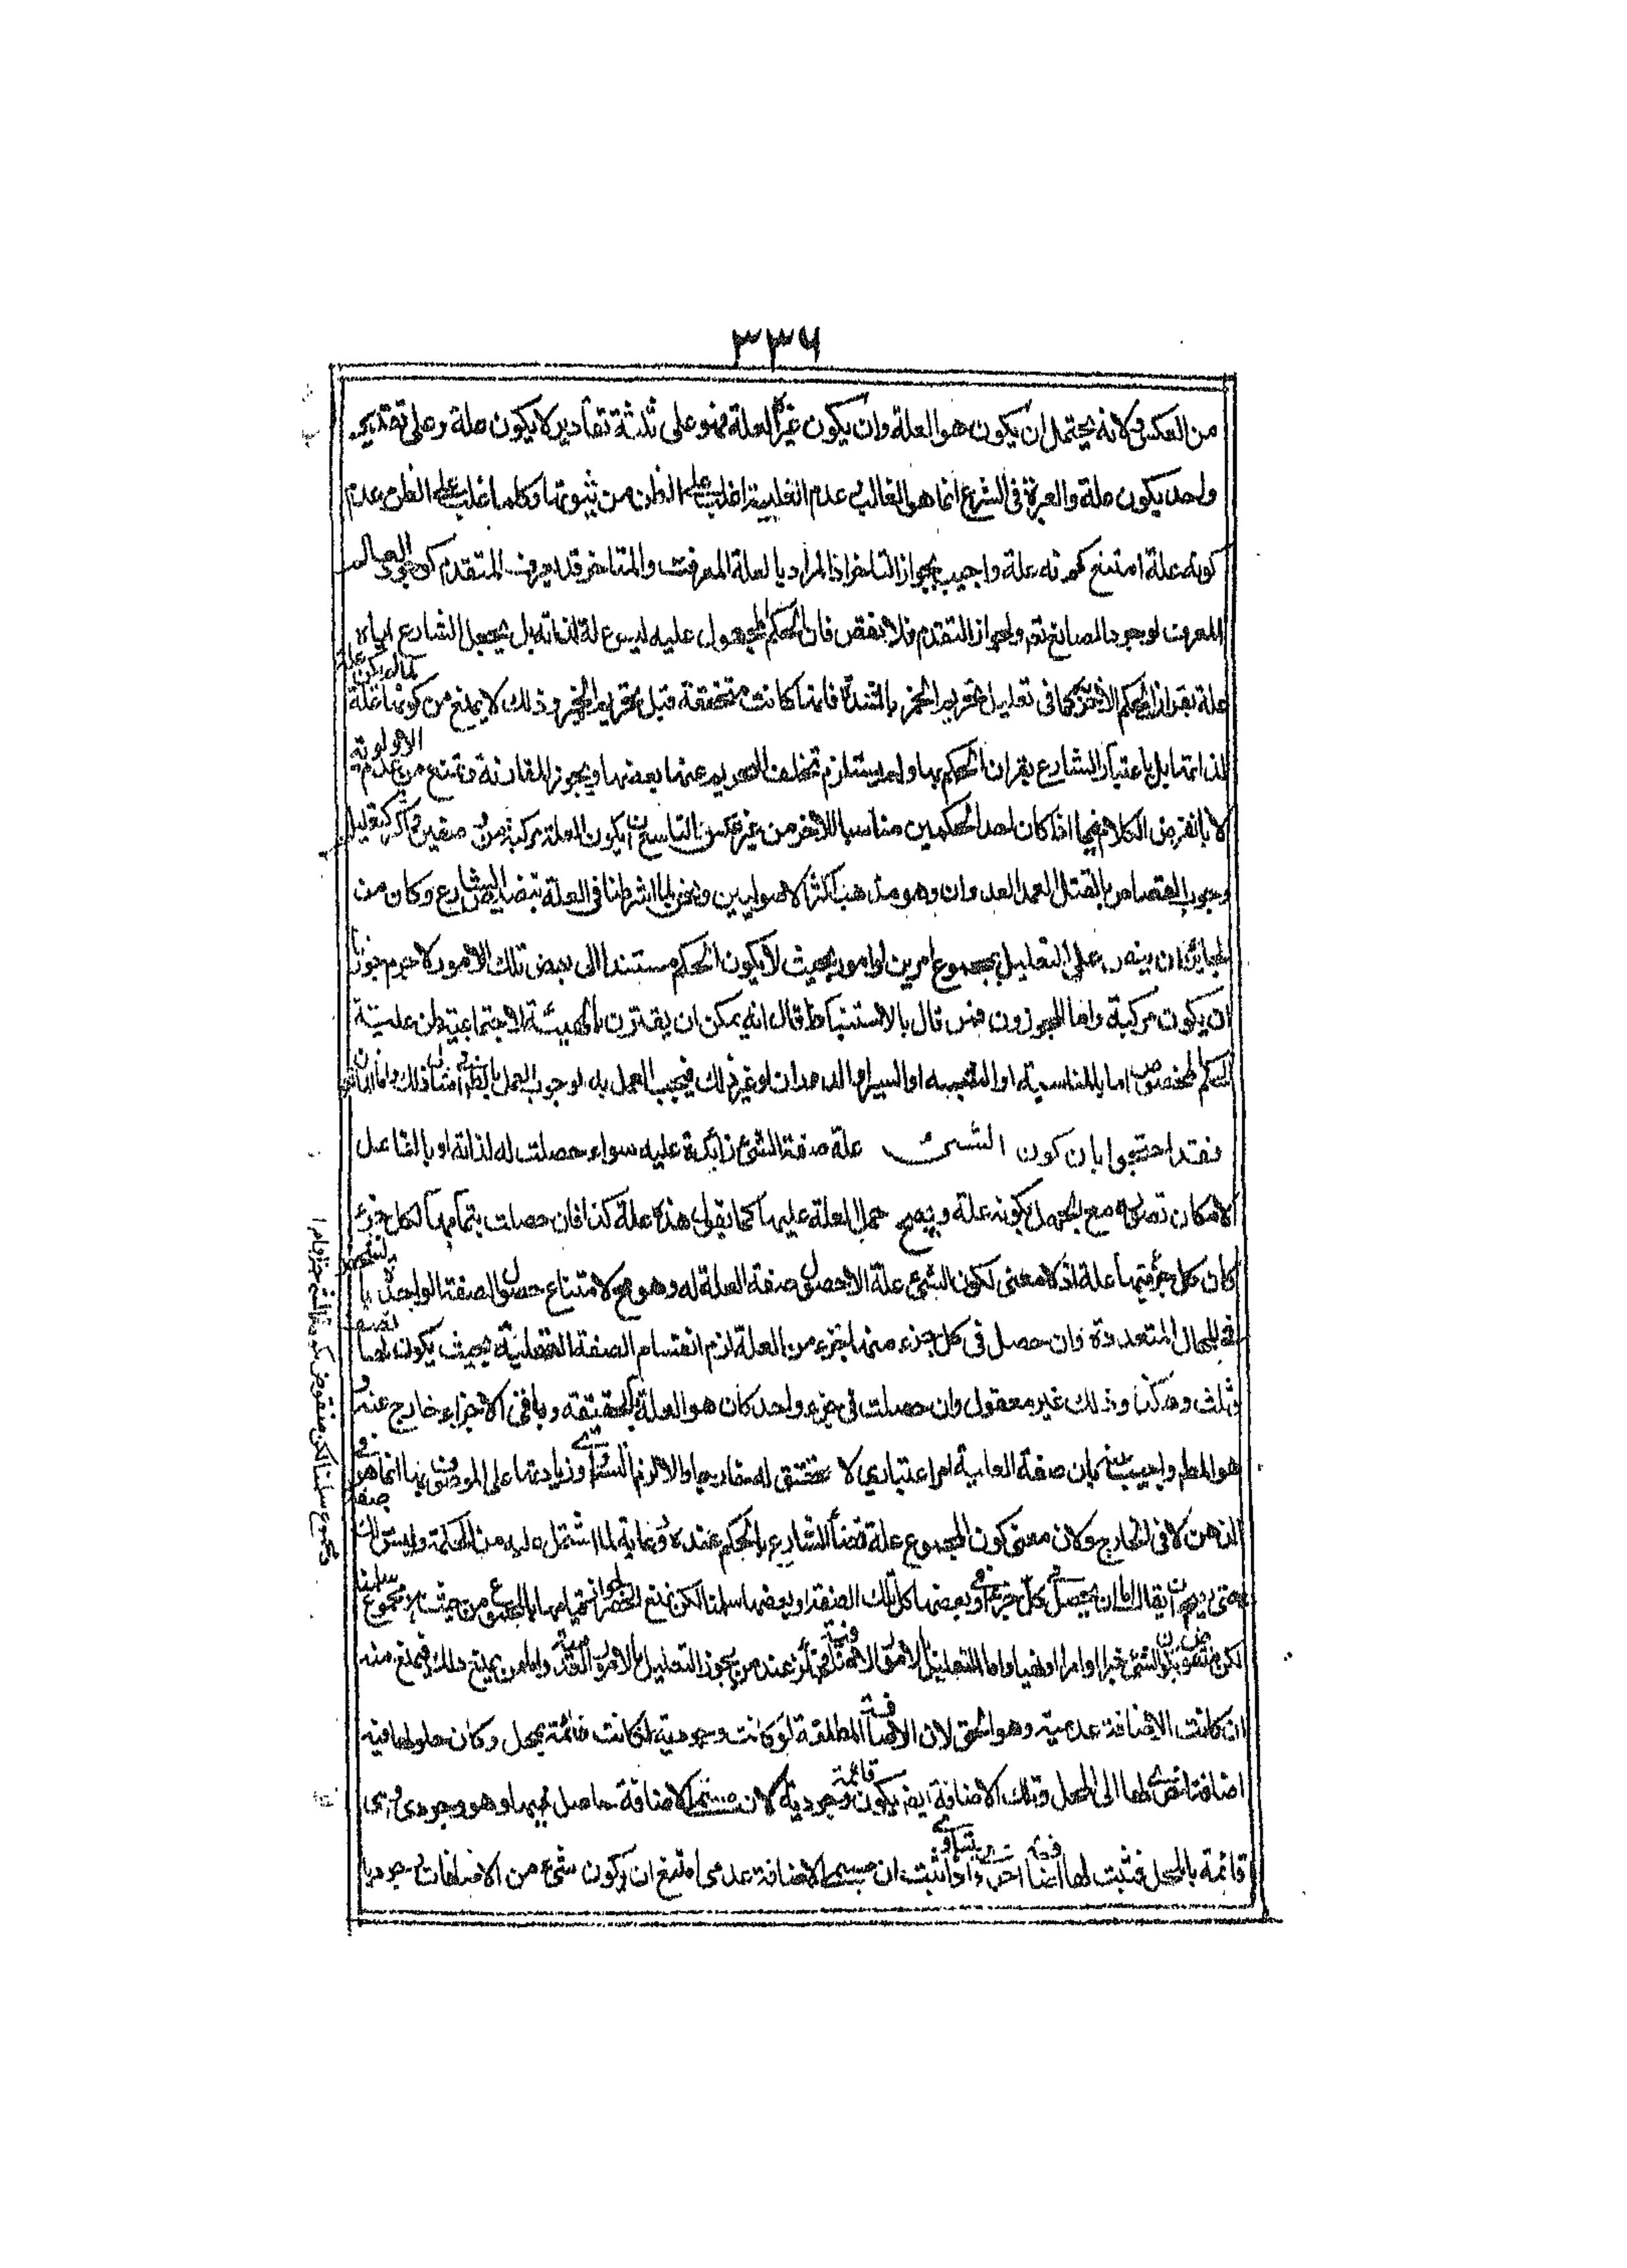 ٣٣٦
من العكس فلانه يحتمل ان يكون هو العلة وان يكون غير العلة فهو على ثلثة تقادير لا يكون علة وعلى تقدير
واحد يكون علة والعبرة فى الشرع انما هو الغالب عدم الغلبة اغلب على الظن من ثبوتها وكلما غلب على الظن عدم
كونه علة امتنع كونه علة واجيب بجواز التاخر اذ المراد بالعلة المعرف والمتاخر قد يعرف المتقدم كوجود العالم
المعرف لوجود الصانع تع ولجواز التقدم فلا نقض فان الحكم المجعول عليه ليس علة لذاته بل بجعل الشارع اياه
علة بقران الحكم الاخر كما فى تعليل تحريم الخمر بالشدة فانها كانت متحققة قبل تحريم الخمر وذلك لا يمنع من كونها علة
لذاتها بل باعتبار الشارع بقران الحكم بها ولم يستلزم تخلف التحريم عنها نقضها ويجوز المقارنة ونمنع من عدم الاولوية
لانا نفرض الكلام فيما اذا كان احد الحكمين مناسبا للاخر من غير عكس التاسع ان يكون العلة مركبة من صفتين فاكثر كتعليل
وجوب القصاص بالقتل العمد العدوان وهو مذهب اكثر الاصوليين ونحن لما اشرطنا فى العلة بنص الشارع وكان من
الجائز ان ينص على التعليل بمجموع امرين او امور بحيث لا يكون الحكم مستندا الى بعض تلك الامور لا جرم جوزنا
ان يكون مركبة واما المجوزون فمن قال بالاستنباط قال انه يمكن ان يقترن بالهيئة الاجتماعية ظن علية
الحكم اما بالمناسبة او الشبه او السبر او الدوران او غير ذلك فيجب العمل به لوجوب العمل بالظن فى امثال ذلك واما المانعون
فقد احتجوا بان كون الشئ علة صفة الشئ زائدة عليه سواء حصلت له لذاته او بالفاعل
لامكان تصوره مع الجهل بكونه علة ويصح حمل العلة عليها كما يقول هذه علة كذا فان حصلت بتمامها لكل جزء
كان كل جزء منها علة اذ لا معنى لكون الشئ علة الا حصول صفة العلة له وهو مح لامتناع حصول الصفة الواحدة بالشخص
فى المحال المتعددة وان حصل فى كل جزء منها جزء من العلة لزم انقسام الصفة العقلية بحيث يكون لها نصف
وثلث وهكذا وذلك غير معقول وان حصلت فى جزء واحد كان هو العلة بالحقيقة وباقى الاجزاء خارج عنه و
هو المط واجيب بان صفة العلية امر اعتبارى لا تحقق له خارجا والا لزم التس وزيادتها على الموصوف بها انما هو فى
الذهن لا فى الخارج ولان معنى كون المجموع علة قضاء الشارع بالحكم عنده رعاية لما اشتمل عليه من الحكمة وليس ذلك صفة
حتى يقال اما ان يحصل لكل جزء او بعضها كل تلك الصفة او بعضها سلمنا لكن نمنع الحصر لجواز قيامها بالمجموع من حيث هو مجموع سلمنا
لكن منقوض بكون الشئ خبرا او امرا او نهيا واما التعليل بالامور الاضافية فجائز عند من يجوز التعليل بالامور العدمية واما من يمنع ذلك فيمنع منه
ان كانت الاضافة عدمية وهو الحق لان الاضافة المطلقة لو كانت وجودية لكانت قائمة بمحل وكان حلولها فيه
اضافة اخرى لها الى المحل وتلك الاضافة ايض يكون وجودية لان مسمى الاضافة حاصل فيها وهو وجودى فهى
قائمة بالمحل فثبت لها اضافة اخرى ويتسلسل واذا ثبت ان مسمى الاضافة عدمى امتنع ان يكون شئ من الاضافات وجوديا